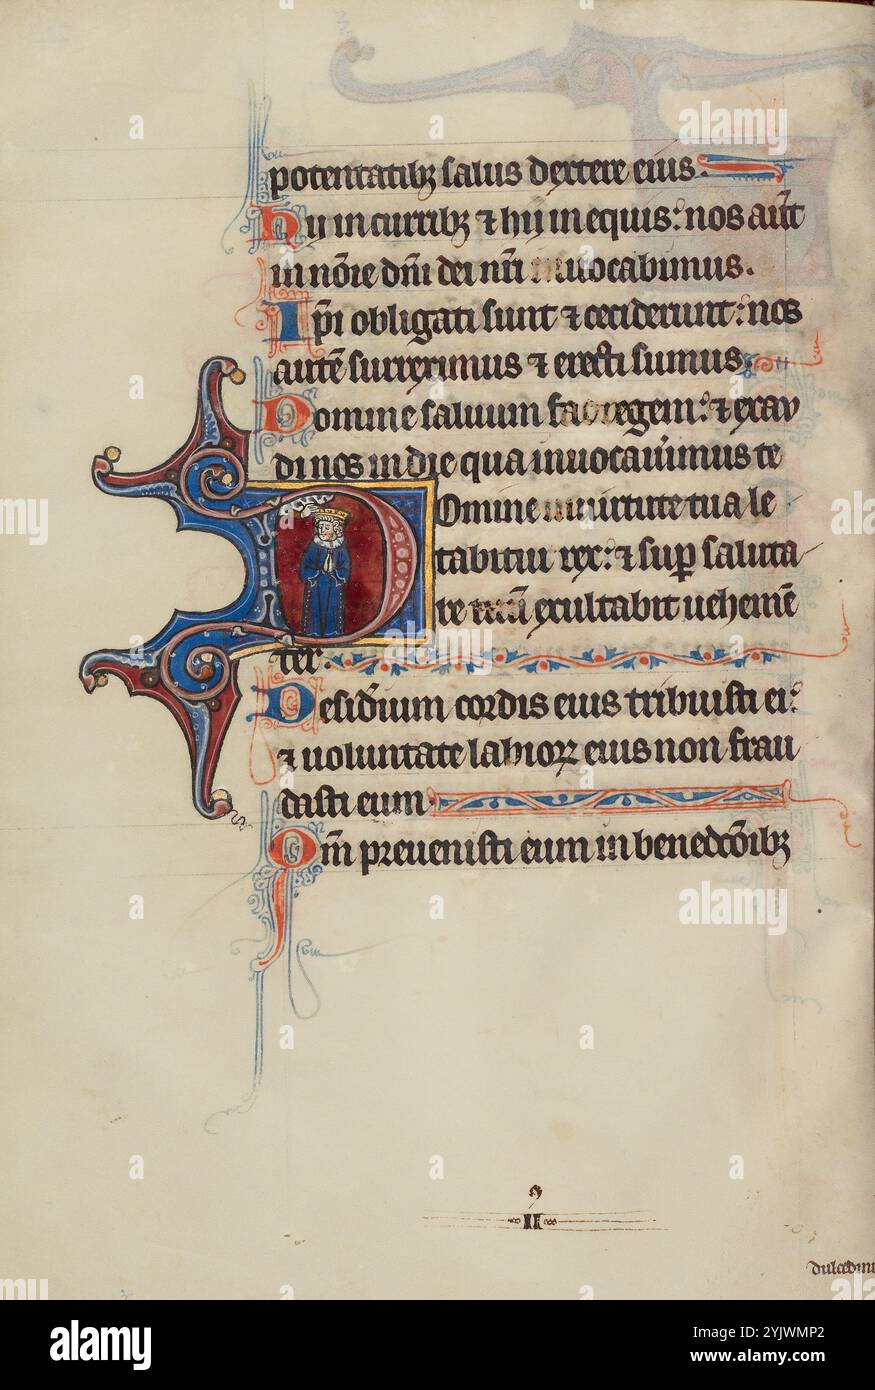 potentatibꝫ salus dextere eius.
Hij in curribꝫ ⁊ hij in equis: nos aūt
in nōie dn̄i dei nr̄i inuocabimus.
Ip̄i obligati sunt ⁊ ceciderunt: nos
autē surreximus ⁊ erecti sumus
Domine saluum fac regem: ⁊ exau
di nos in die qua inuocauimus te
Domine in uirtute tua le
tabitur rex: ⁊ sup̄ saluta
re tuū exultabit uehemē
ter.
Desid̄ium cordis eius tribuisti ei:
⁊ uoluntate labioꝝ eius non frau
dasti eum
Dn̄e preuenisti eum in benedcōibꝫ
II
dulcedini
alamy
Image ID: 2YJWMP2
www.alamy.com